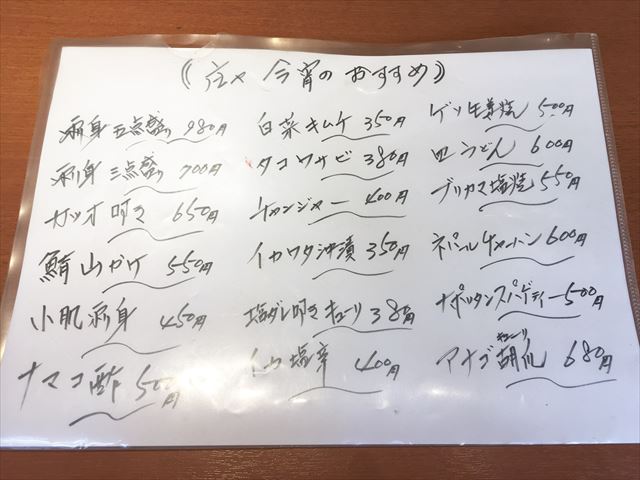 《庄や 今宵のおすすめ》
刺身五点盛り 980円
刺身三点盛り 700円
カツオ叩き 650円
鮪山かけ 550円
小肌刺身 450円
ナマコ酢 500円
白菜キムチ 350円
タコワサビ 380円
チャンジャー 400円
イカワタ沖漬 350円
塩ダレ叩きキューリ 380円
仙塩辛 400円
ゲソ生姜焼 500円
皿うどん 600円
ブリカマ塩焼 550円
ネパールチャーハン 600円
ナポリタンスパゲティー 500円
キューリ
アナゴ胡瓜 680円